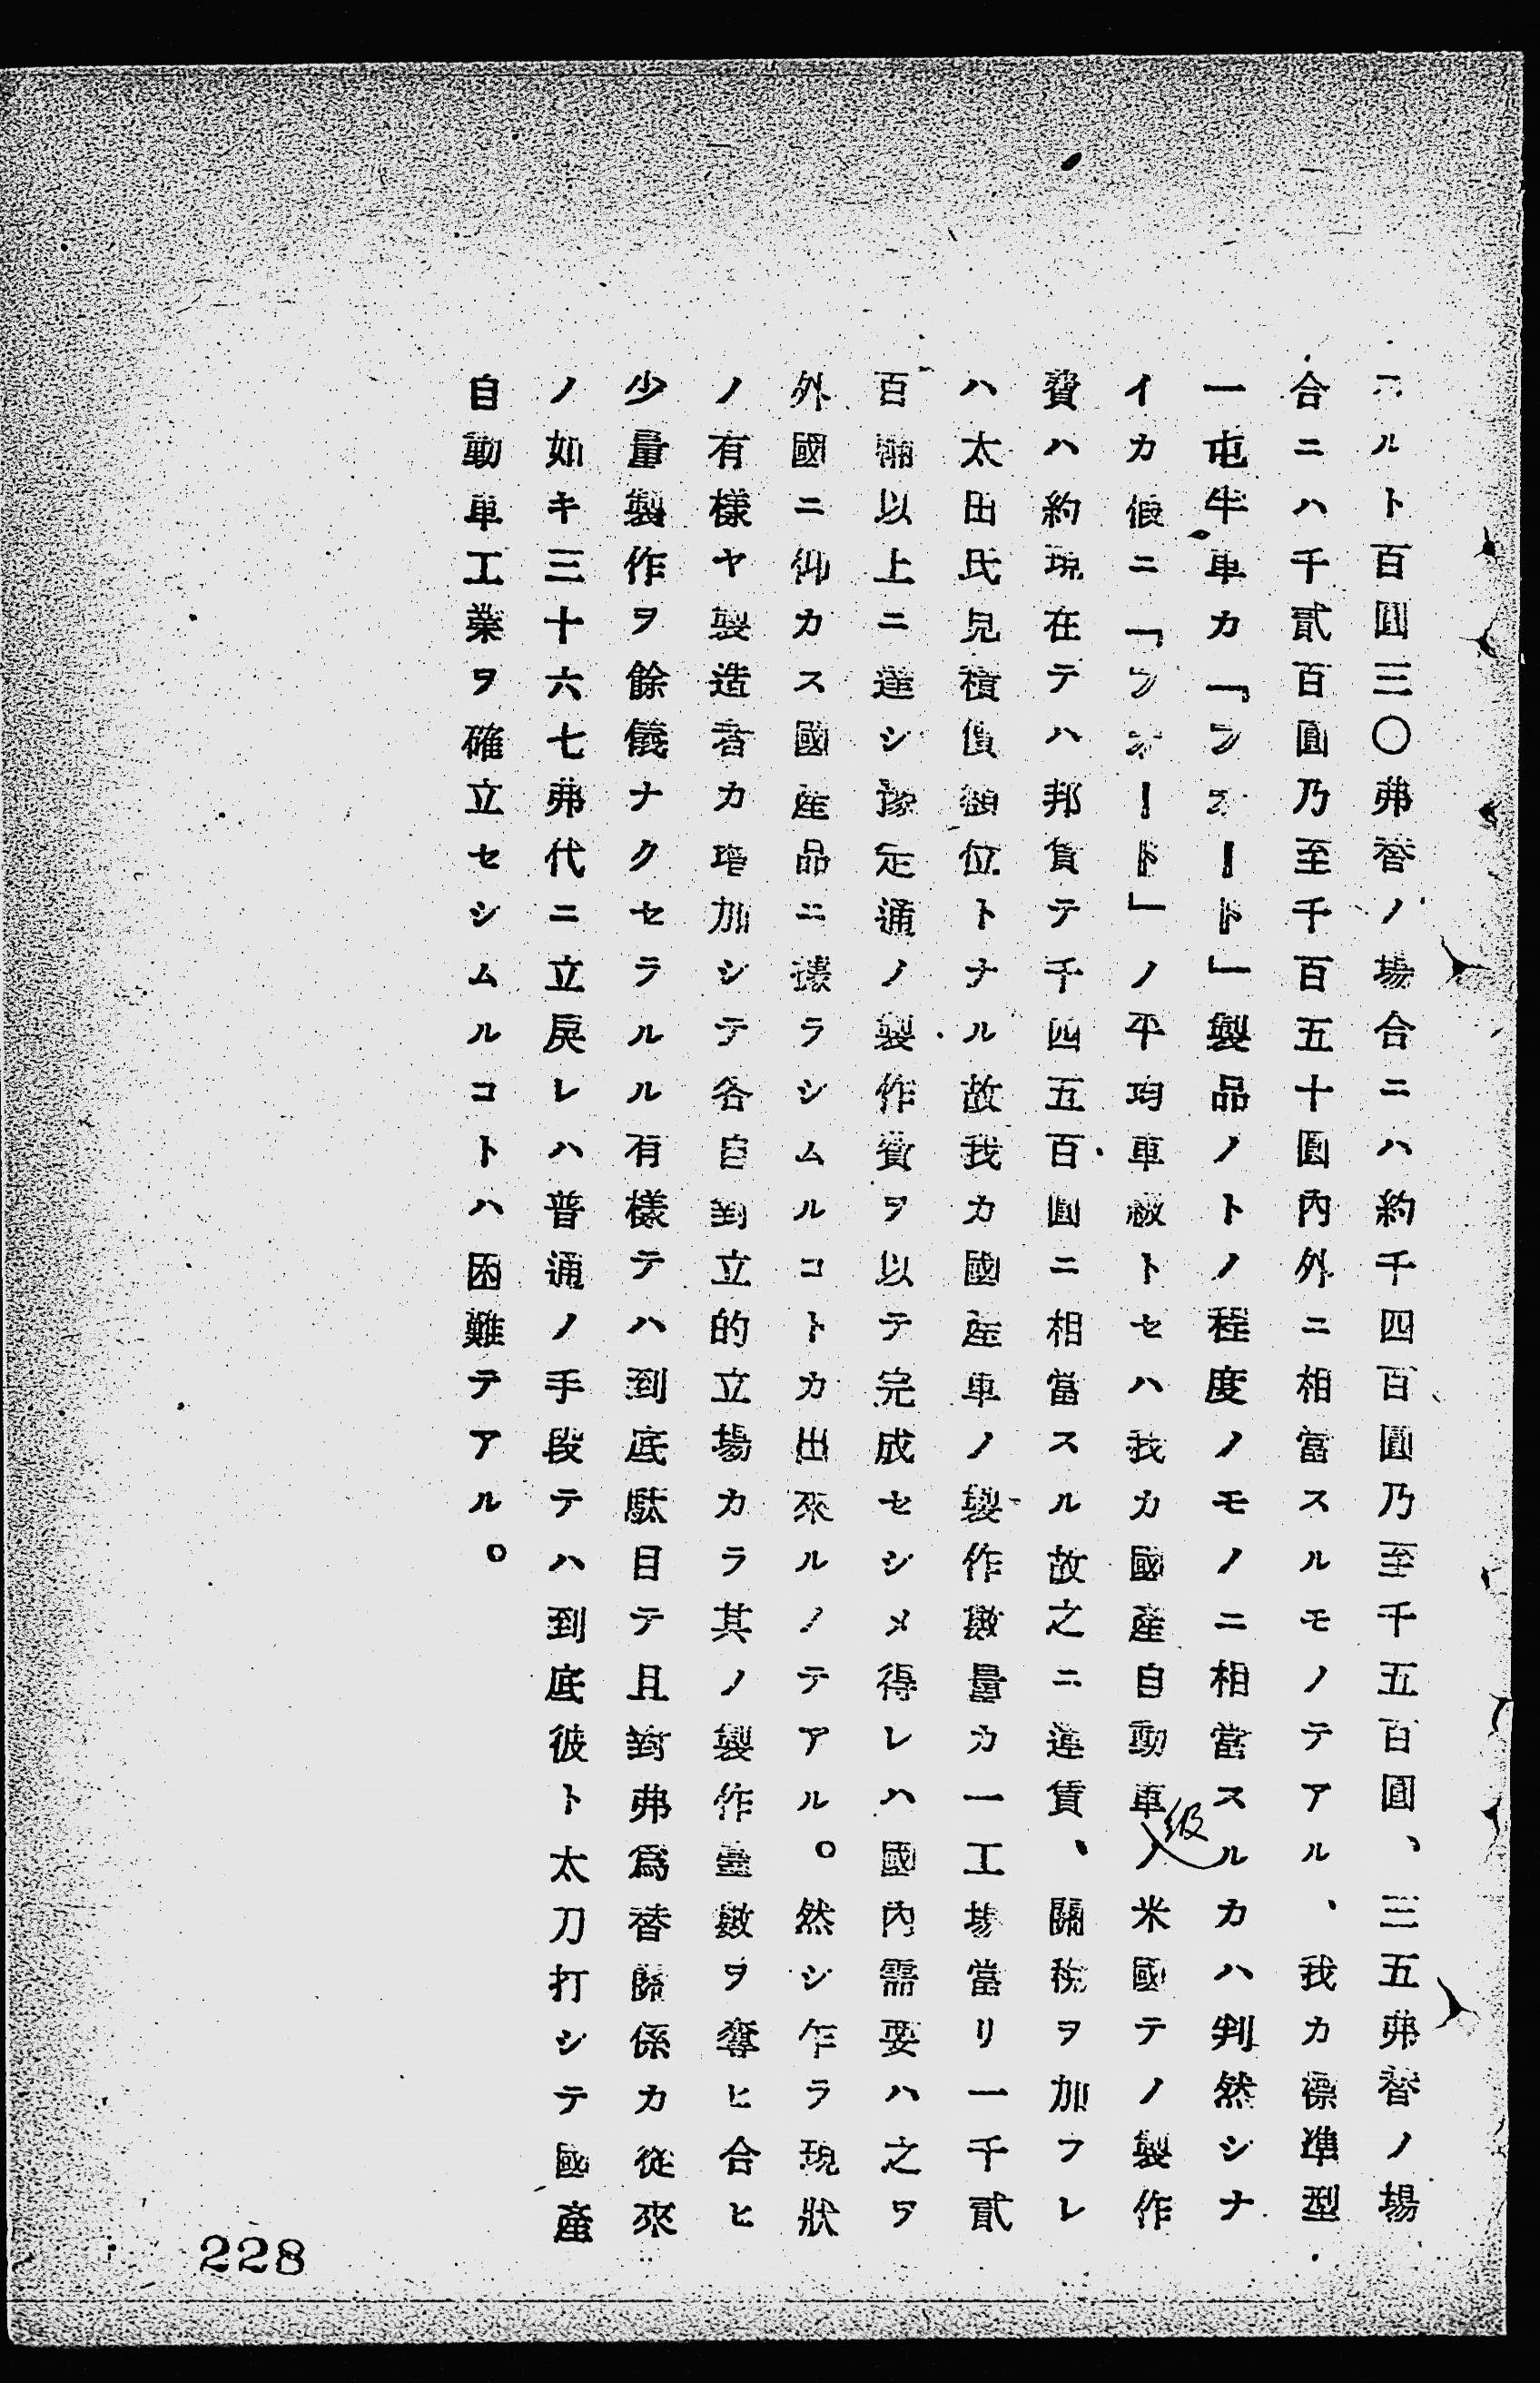 ニルト百圓三〇弗替ノ場合ニハ約千四百圓乃至千五百圓、三五弗替ノ場
合ニハ千貳百圓乃至千百五十圓內外ニ相當スルモノテアル、我カ標準型
一屯半車カ「フオード」製品ノトノ程度ノモノニ相當スルカハ判然シナ
イカ假ニ「フオード」ノ平均車級トセハ我カ國產自動車級ノ米國テノ製作
費ハ約現在テハ邦貨テ千四五百圓ニ相當スル故之ニ運賃、關稅ヲ加フレ
ハ太田氏見積價額位トナル故我カ國產車ノ製作數量カ一工場當リ一千貳
百輛以上ニ達シ豫定通ノ製作費ヲ以テ完成セシメ得レハ國內需要ハ之ヲ
外國ニ仰カス國產品ニ據ラシムルコトカ出來ルノテアル。然シ乍ラ現狀
ノ有樣ヤ製造者カ增加シテ各自對立的立場カラ其ノ製作臺數ヲ奪ヒ合ヒ
少量製作ヲ餘儀ナクセラルル有樣テハ到底駄目テ且對弗爲替關係カ從來
ノ如キ三十六七弗代ニ立戾レハ普通ノ手段テハ到底彼ト太刀打シテ國產
自動車工業ヲ確立セシムルコトハ困難テアル。
228